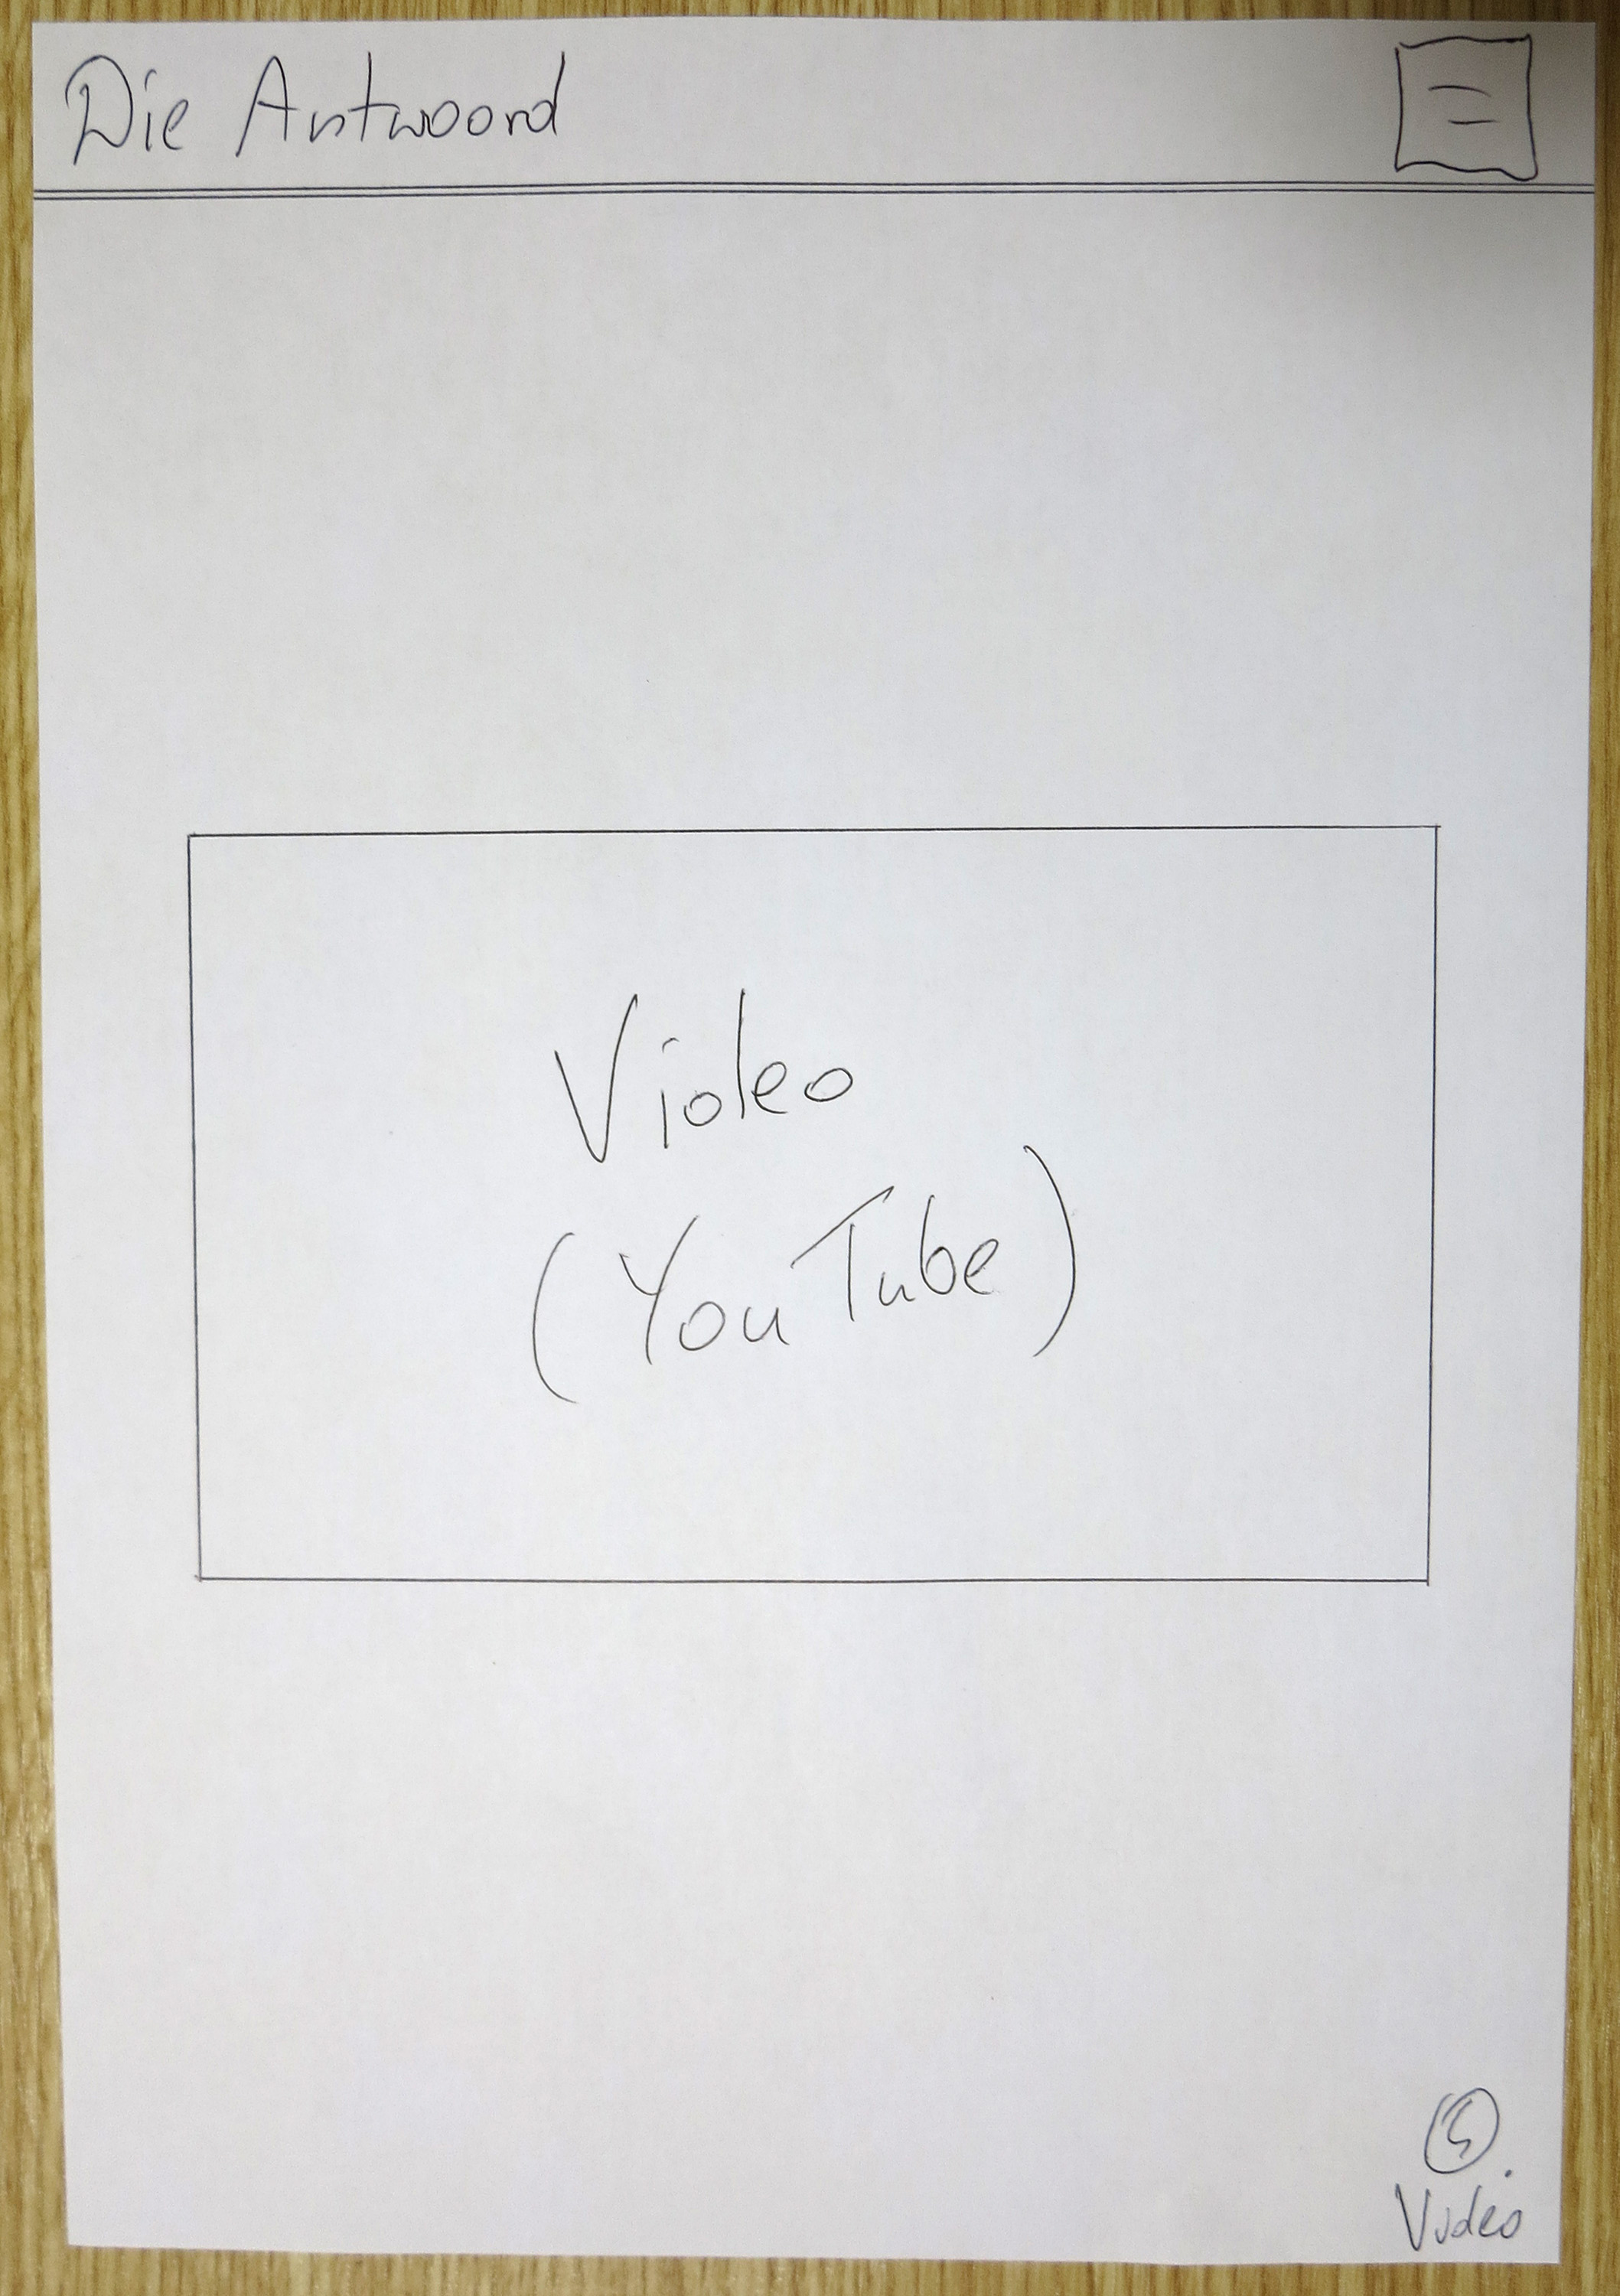 Die Antwoord
Video
(YouTube)
Video